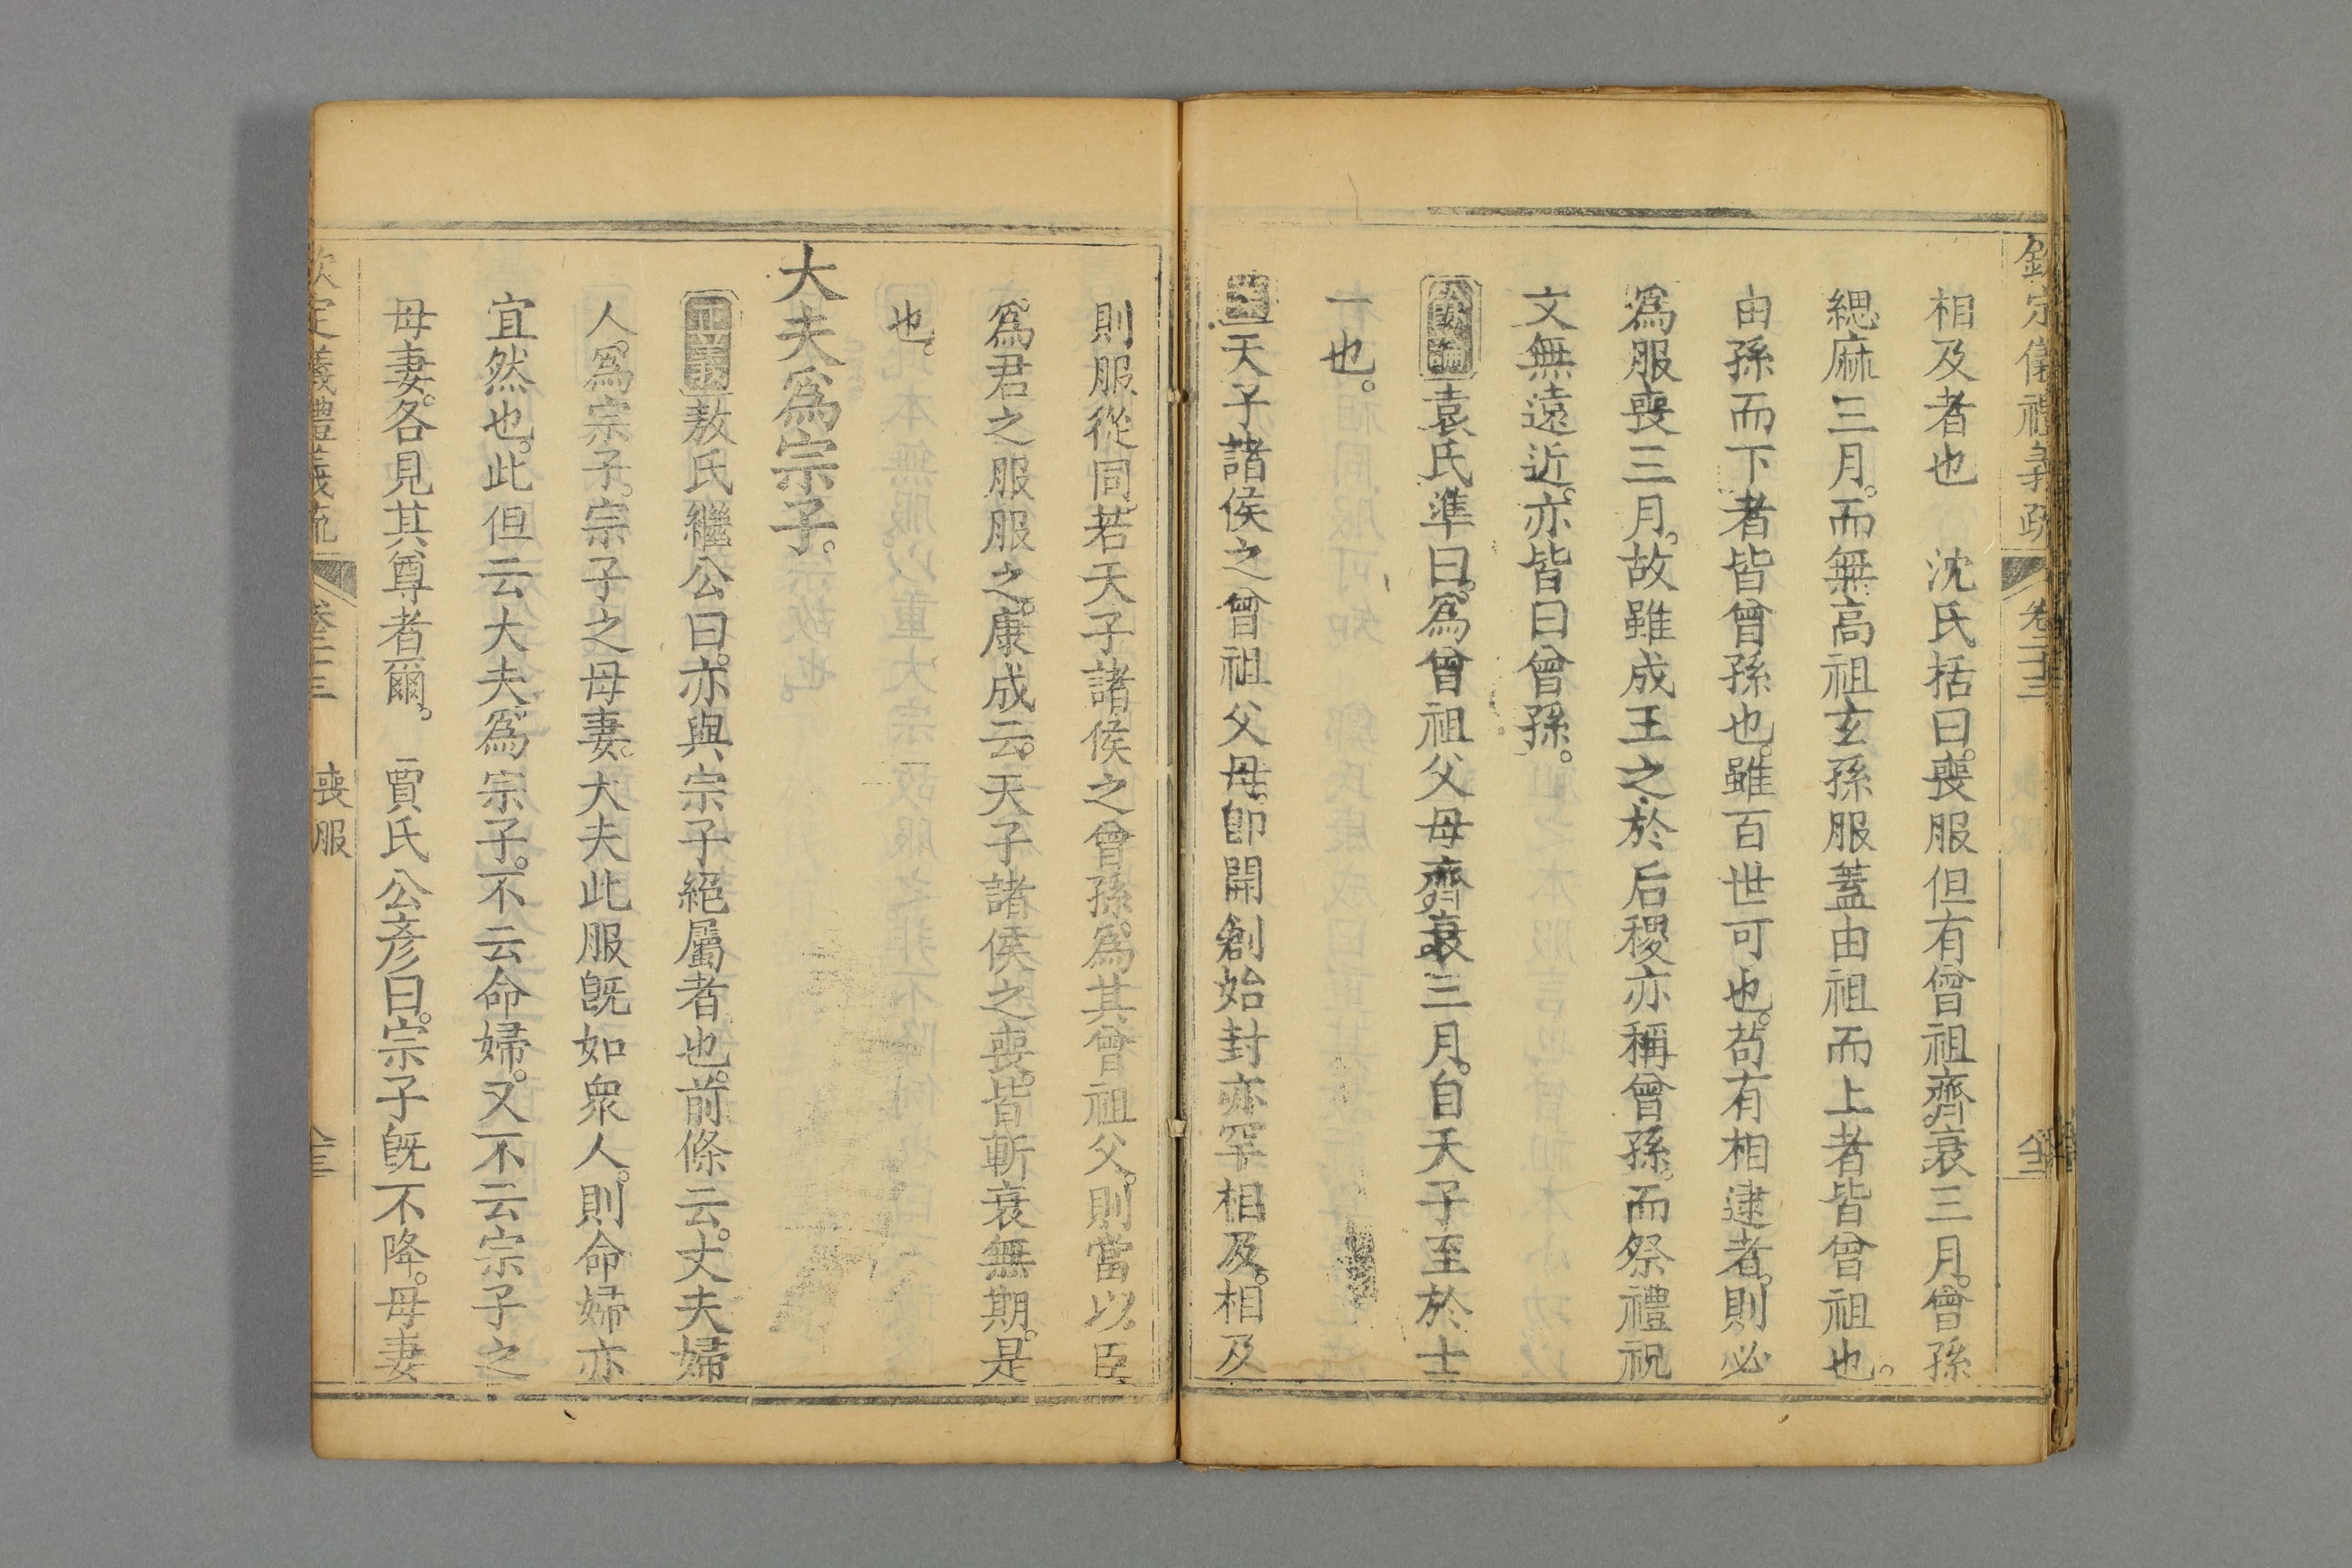 欽定儀禮義疏 卷二十三
相及者也 沈氏括曰。喪服但有曾祖齊衰三月。曾孫
緦麻三月。而無高祖玄孫服蓋由祖而上者皆曾祖也。
由孫而下者皆曾孫也。雖百世可也。苟有相逮者。則必
爲服喪三月。故雖成王之於后稷亦稱曾孫。而祭禮祝
文無遠近。亦皆曰曾孫。
袁氏準曰。爲曾祖父母齊衰三月。自天子至於士
一也。
天子諸侯之曾祖父母。卽開創始封亦罕相及。相及
則服從同。若天子諸侯之曾孫爲其曾祖父。則當以臣
爲君之服服之。康成云。天子諸侯之喪。皆斬衰無期。是
也。
大夫爲宗子。
正義敖氏繼公曰。亦與宗子絕屬者也。前條云。丈夫婦
人。爲宗子。宗子之母妻。大夫此服旣如衆人。則命婦亦
宜然也。此但云大夫爲宗子。不云命婦。又不云宗子之
母妻。各見其尊者爾。 賈氏公彥曰。宗子旣不降。母妻
欽定儀禮義疏 卷二十三 喪服